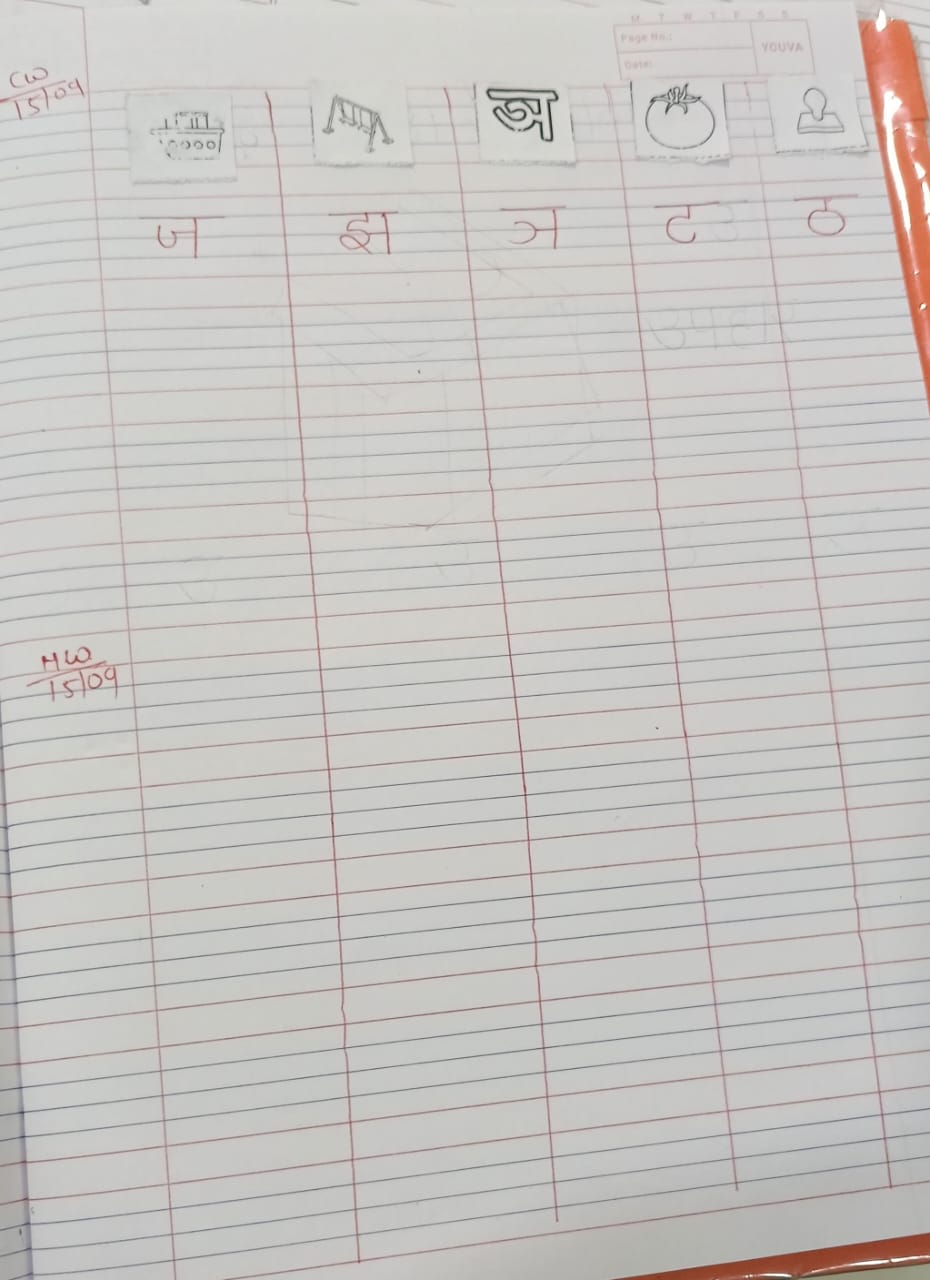 M T W T F S S
Page No.:
YOUVA
Date:
CW
15/09
अ
ज झ ञ ट ठ
HW
15/09